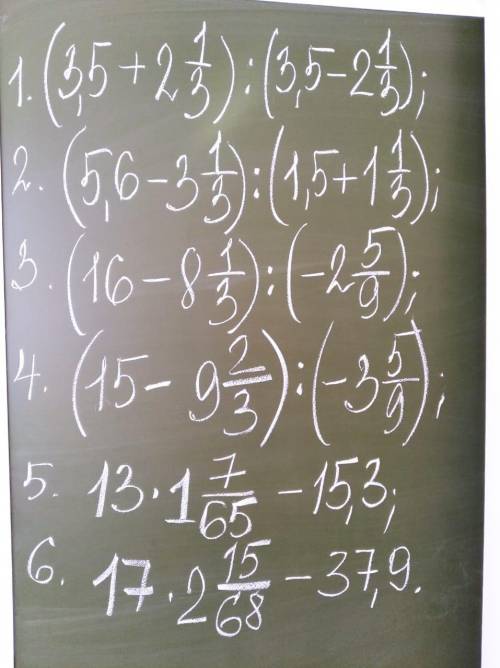 1. (3,5 + 2 1/3) : (3,5 − 2 1/3);
2. (5,6 − 3 1/3) : (1,5 + 1 1/3);
3. (16 − 8 1/3) : (−2 5/9);
4. (15 − 9 2/3) : (−3 5/9);
5. 13 · 1 7/65 − 15,3;
6. 17 · 2 15/68 − 37,9.